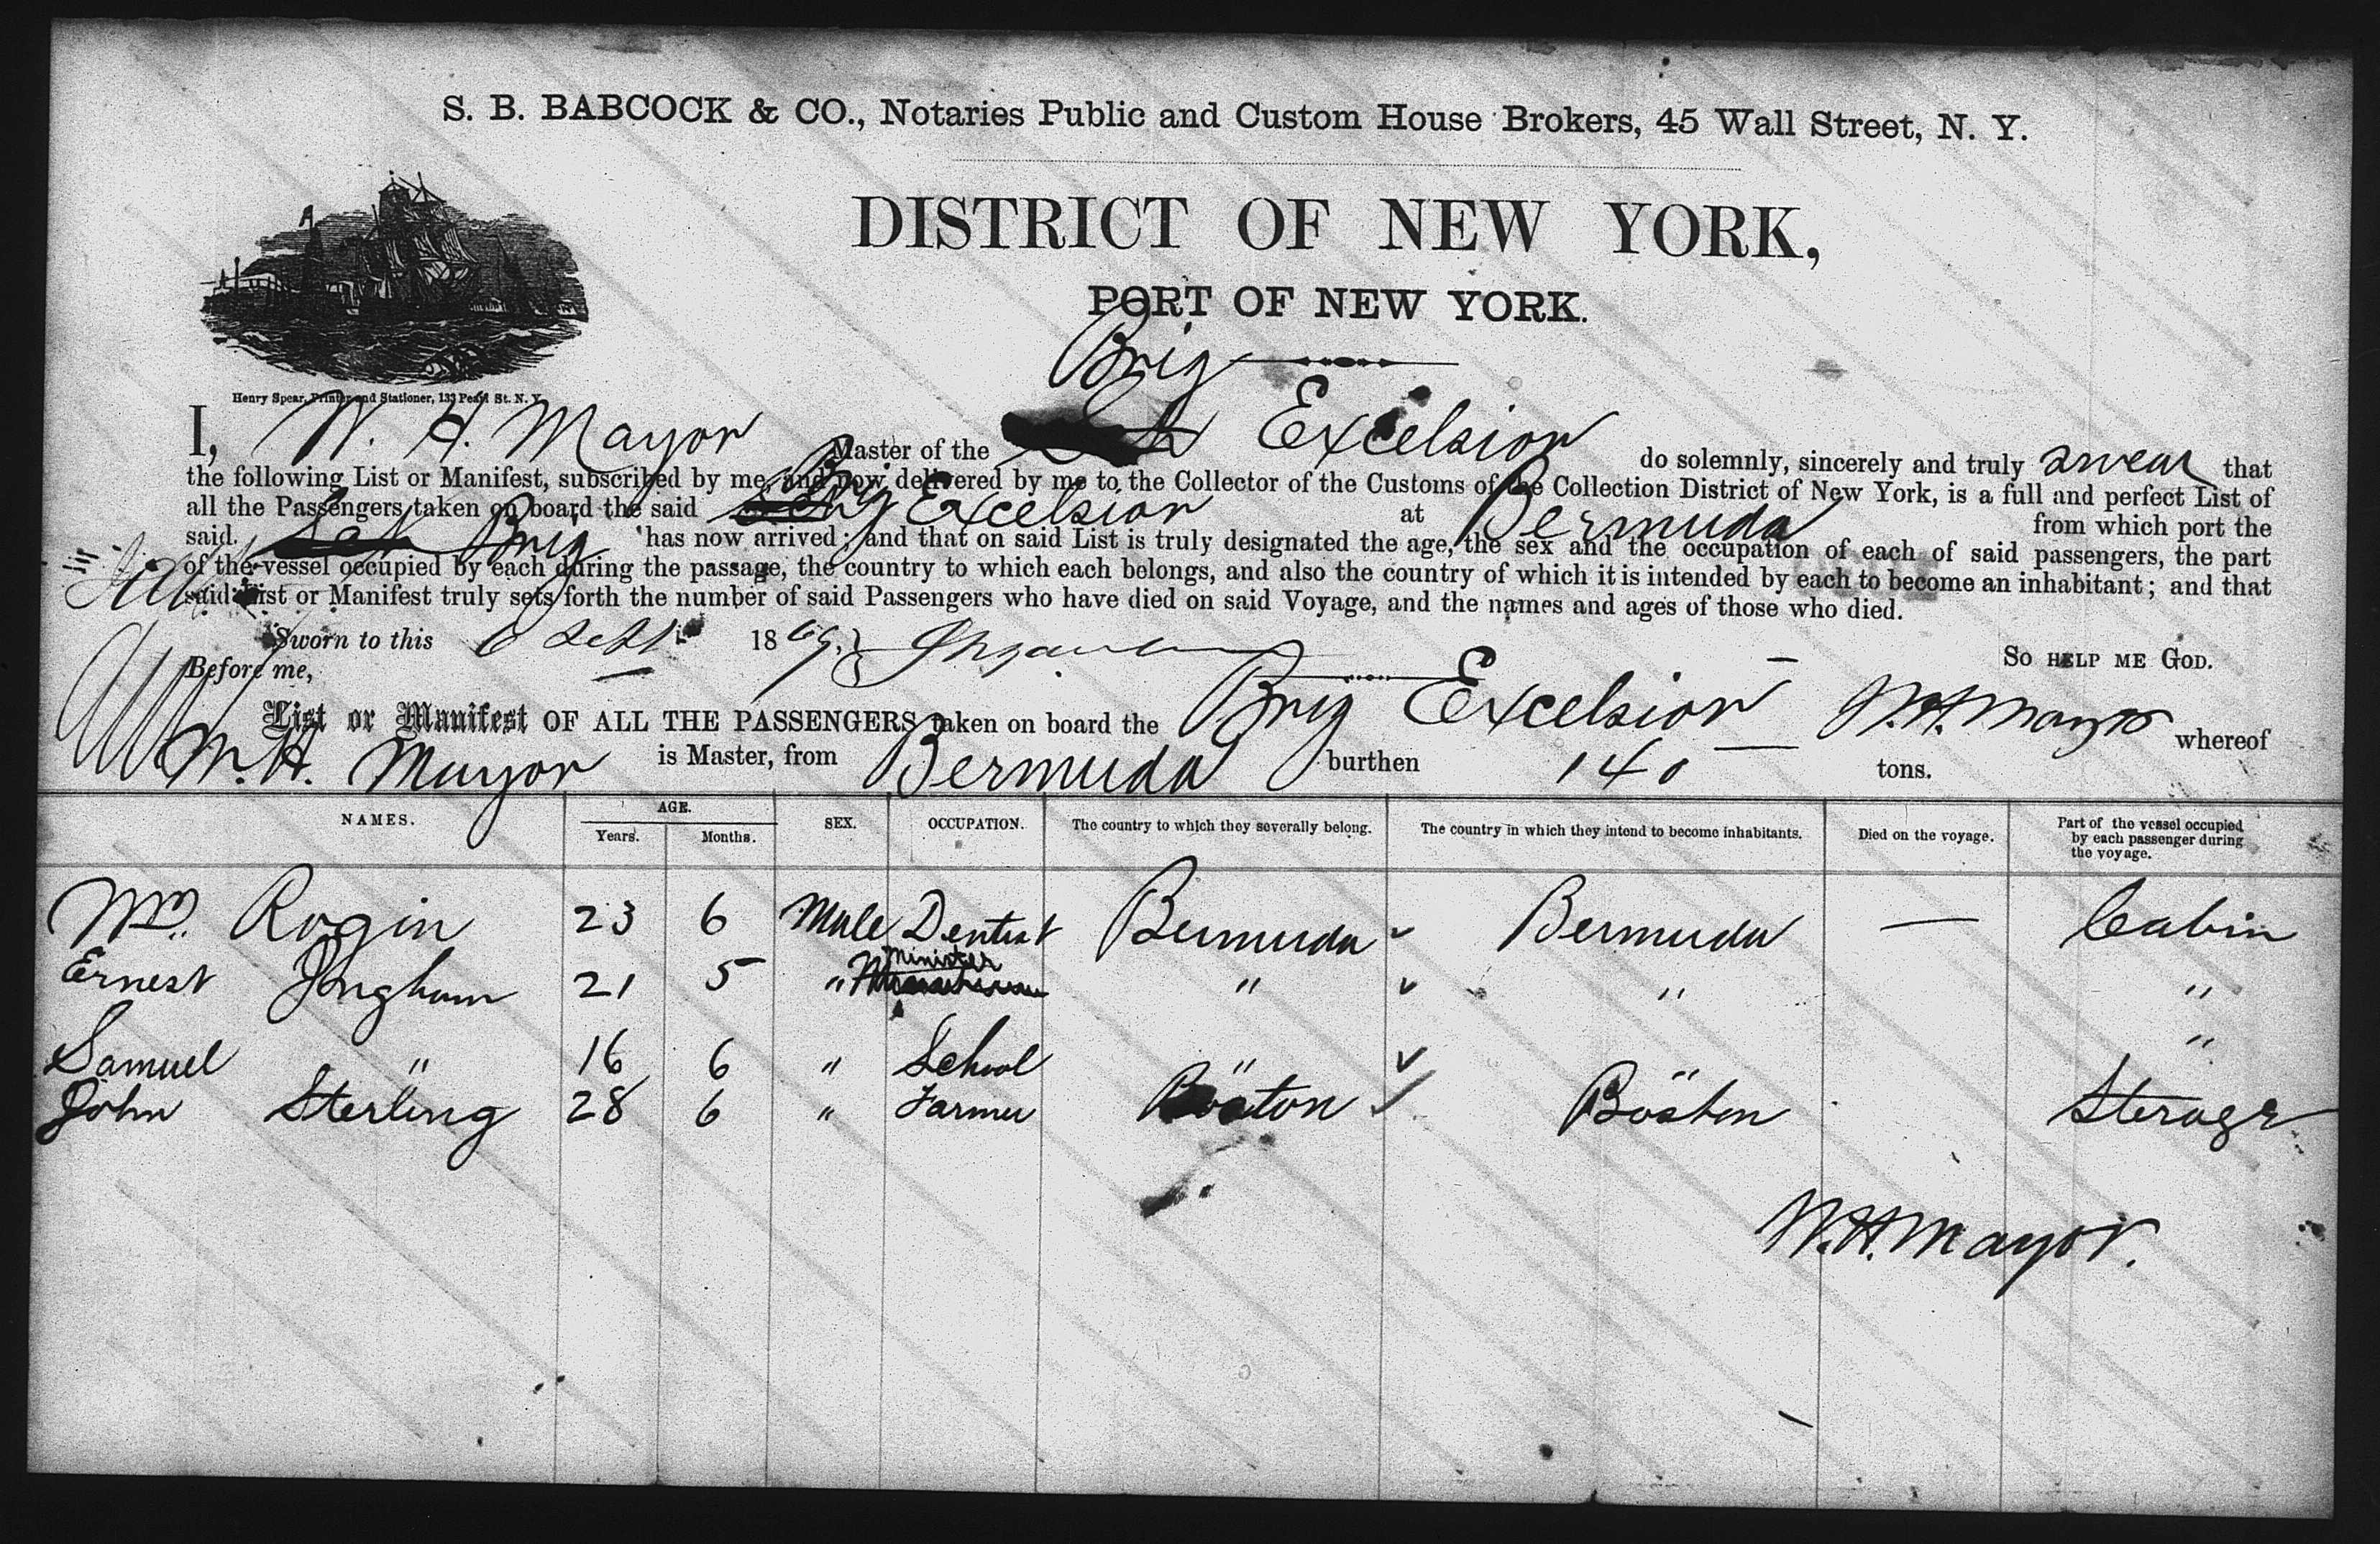 S. B. BABCOCK & CO., Notaries Public and Custom House Brokers, 45 Wall Street, N. Y.
DISTRICT OF NEW YORK,
PORT OF NEW YORK.
Brig
Henry Spear, Printer and Stationer, 133 Pearl St. N. Y.
I, W. H. Mayor Master of the Excelsior do solemnly, sincerely and truly swear that
the following List or Manifest, subscribed by me, and now delivered by me to the Collector of the Customs of the Collection District of New York, is a full and perfect List of
all the Passengers taken on board the said Brig Excelsior at Bermuda from which port the
said. Sch Brig has now arrived; and that on said List is truly designated the age, the sex and the occupation of each of said passengers, the part
of the vessel occupied by each during the passage, the country to which each belongs, and also the country of which it is intended by each to become an inhabitant; and that
said List or Manifest truly sets forth the number of said Passengers who have died on said Voyage, and the names and ages of those who died.
Sworn to this 6 Sept 1869.
So help me God.
Before me,
List or Manifest OF ALL THE PASSENGERS taken on board the Brig Excelsior W. H. Mayor whereof
W. H. Mayor is Master, from Bermuda burthen 140 tons.
NAMES. AGE. Years. Months. SEX. OCCUPATION. The country to which they severally belong. The country in which they intend to become inhabitants. Died on the voyage. Part of the vessel occupied by each passenger during the voyage.
Wm. Rogin 23 6 Male Dentist Bermuda ✓ Bermuda — Cabin
Ernest Jngham 21 5 " Minister " ✓ " "
Samuel " 16 6 " School " ✓ " "
John Sterling 28 6 " Farmer Boston ✓ Boston Sterage
W. H. Mayor.